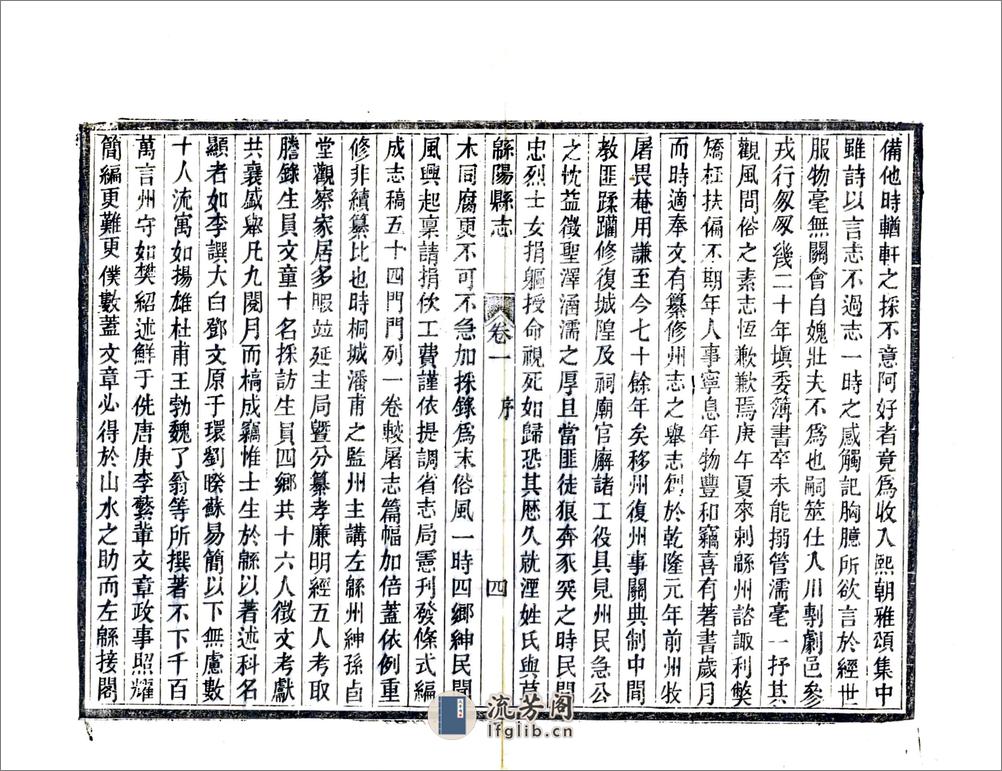 備他時輶軒之採不意阿好者竟爲收入熙朝雅頌集中
雖詩以言志不過志一時之感觸記胸臆所欲言於經世
服物毫無關會自媿壯夫不爲也嗣筮仕入川剸劇邑參
戎行匆匆幾二十年塡委簿書卒未能搦管濡毫一抒其
觀風問俗之素志恆歉歉焉庚午夏來刺緜州諮諏利獘
矯枉扶偏不期年人事寧息年物豐和竊喜有著書歲月
而時適奉文有纂修州志之舉志創於乾隆元年前州牧
屠畏菴用謙至今七十餘年矣移州復州事關典制中間
教匪蹂躪修復城隍及祠廟官廨諸工役具見州民急公
之忱益徵聖澤涵濡之厚且當匪徒狼奔豕突之時民間
忠烈士女捐軀授命視死如歸恐其歷久就湮姓氏與草
緜陽縣志
卷一
序
四
木同腐更不可不急加採錄爲末俗風一時四鄉紳民聞
風興起稟請捐佽工費謹依提調省志局憲刊發條式編
成志稿五十四門門列一卷較屠志篇幅加倍蓋依例重
修非續纂比也時桐城潘甫之監州主講左緜州紳孫自
堂觀察家居多暇竝延主局曁分纂孝廉明經五人考取
謄錄生員文童十名採訪生員四鄉共十六人徵文考獻
共襄盛舉凡九閱月而槁成竊惟士生於緜以著述科名
顯者如李譔大白鄧文原于環劉暌蘇易簡以下無慮數
十人流寓如揚雄杜甫王勃魏了翁等所撰著不下千百
萬言州守如樊紹述鮮于侁唐庚李藝軰文章政事照耀
簡編更難更僕數蓋文章必得於山水之助而左緜接閣
流芳阁
lfglib.cn